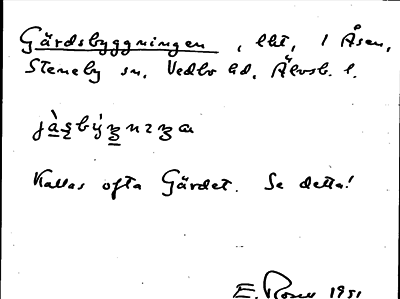 Gärdsbyggningen, lht, i Åsen,
Steneby sn. Vedbo hd. Älvsb. l.
Kallas ofta Gärdet. Se detta!
E. Rosell 1951